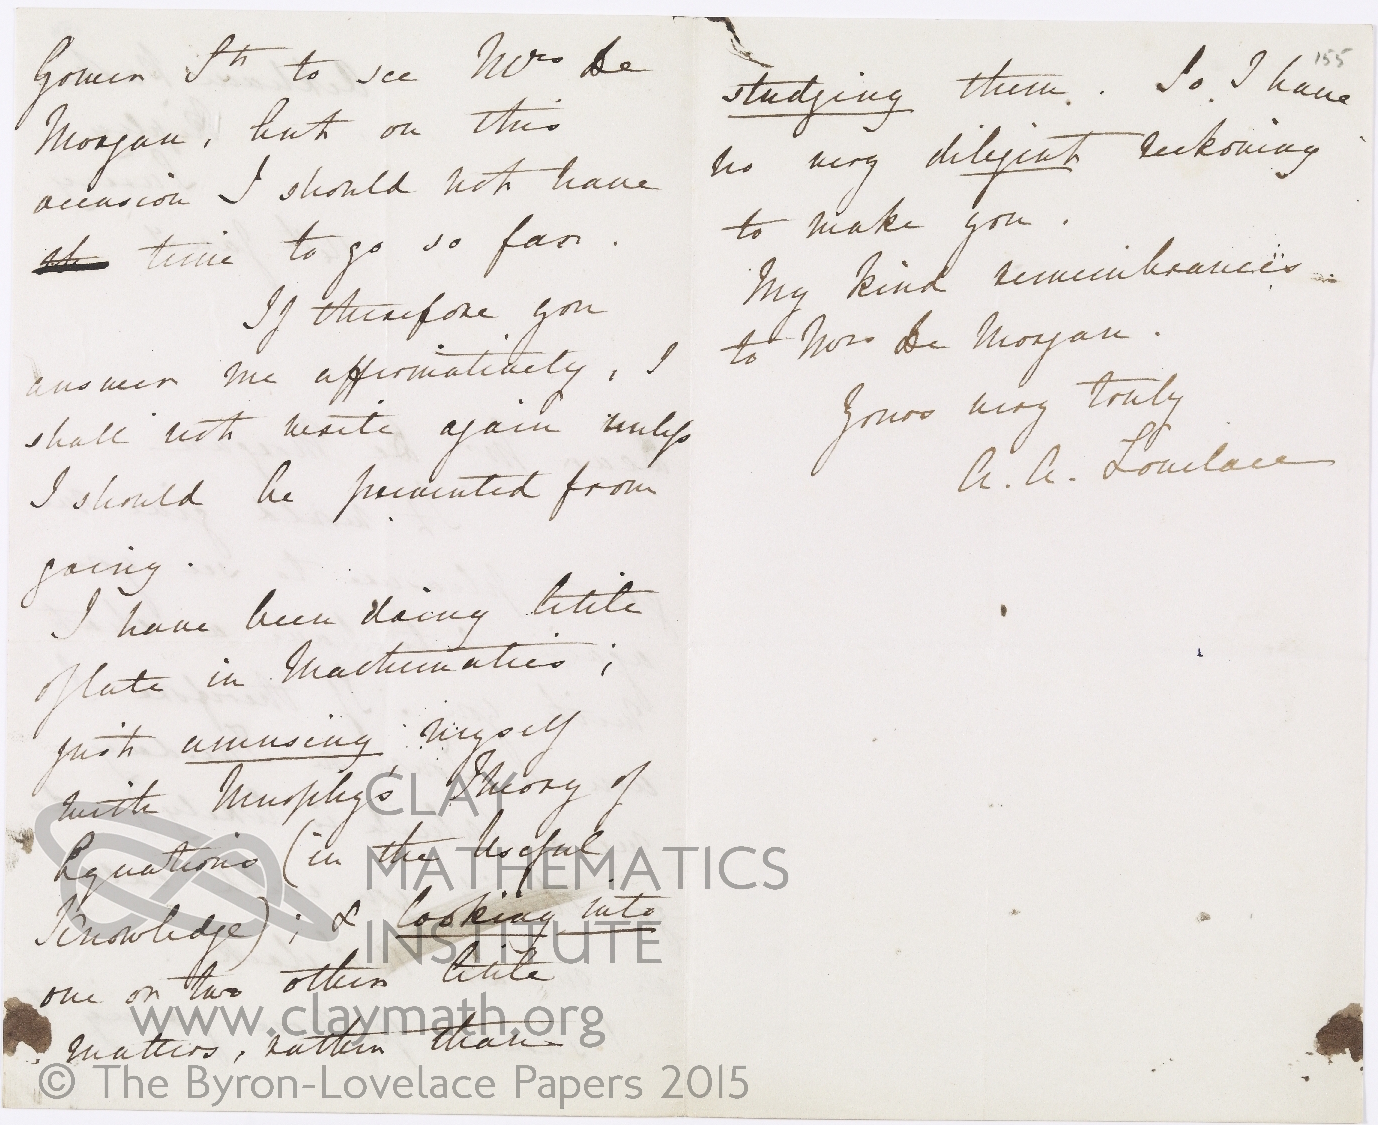 Gower St to see Mrs De
Morgan, but on this
occasion I should not have
time to go so far.
If therefore you
answer me affirmatively, I
shall not write again unless
I should be prevented from
going.
I have been doing little
of late in Mathematics;
just amusing myself
with Murphy's Theory of
Equations (in the Useful
Knowledge); & looking into
one or two other little
matters, rather than
155
studying them. So I have
no very diligent reckoning
to make you.
My kind remembrances
to Mrs De Morgan.
Yours very truly
A. A. Lovelace
CLAY
MATHEMATICS
INSTITUTE
www.claymath.org
© The Byron-Lovelace Papers 2015